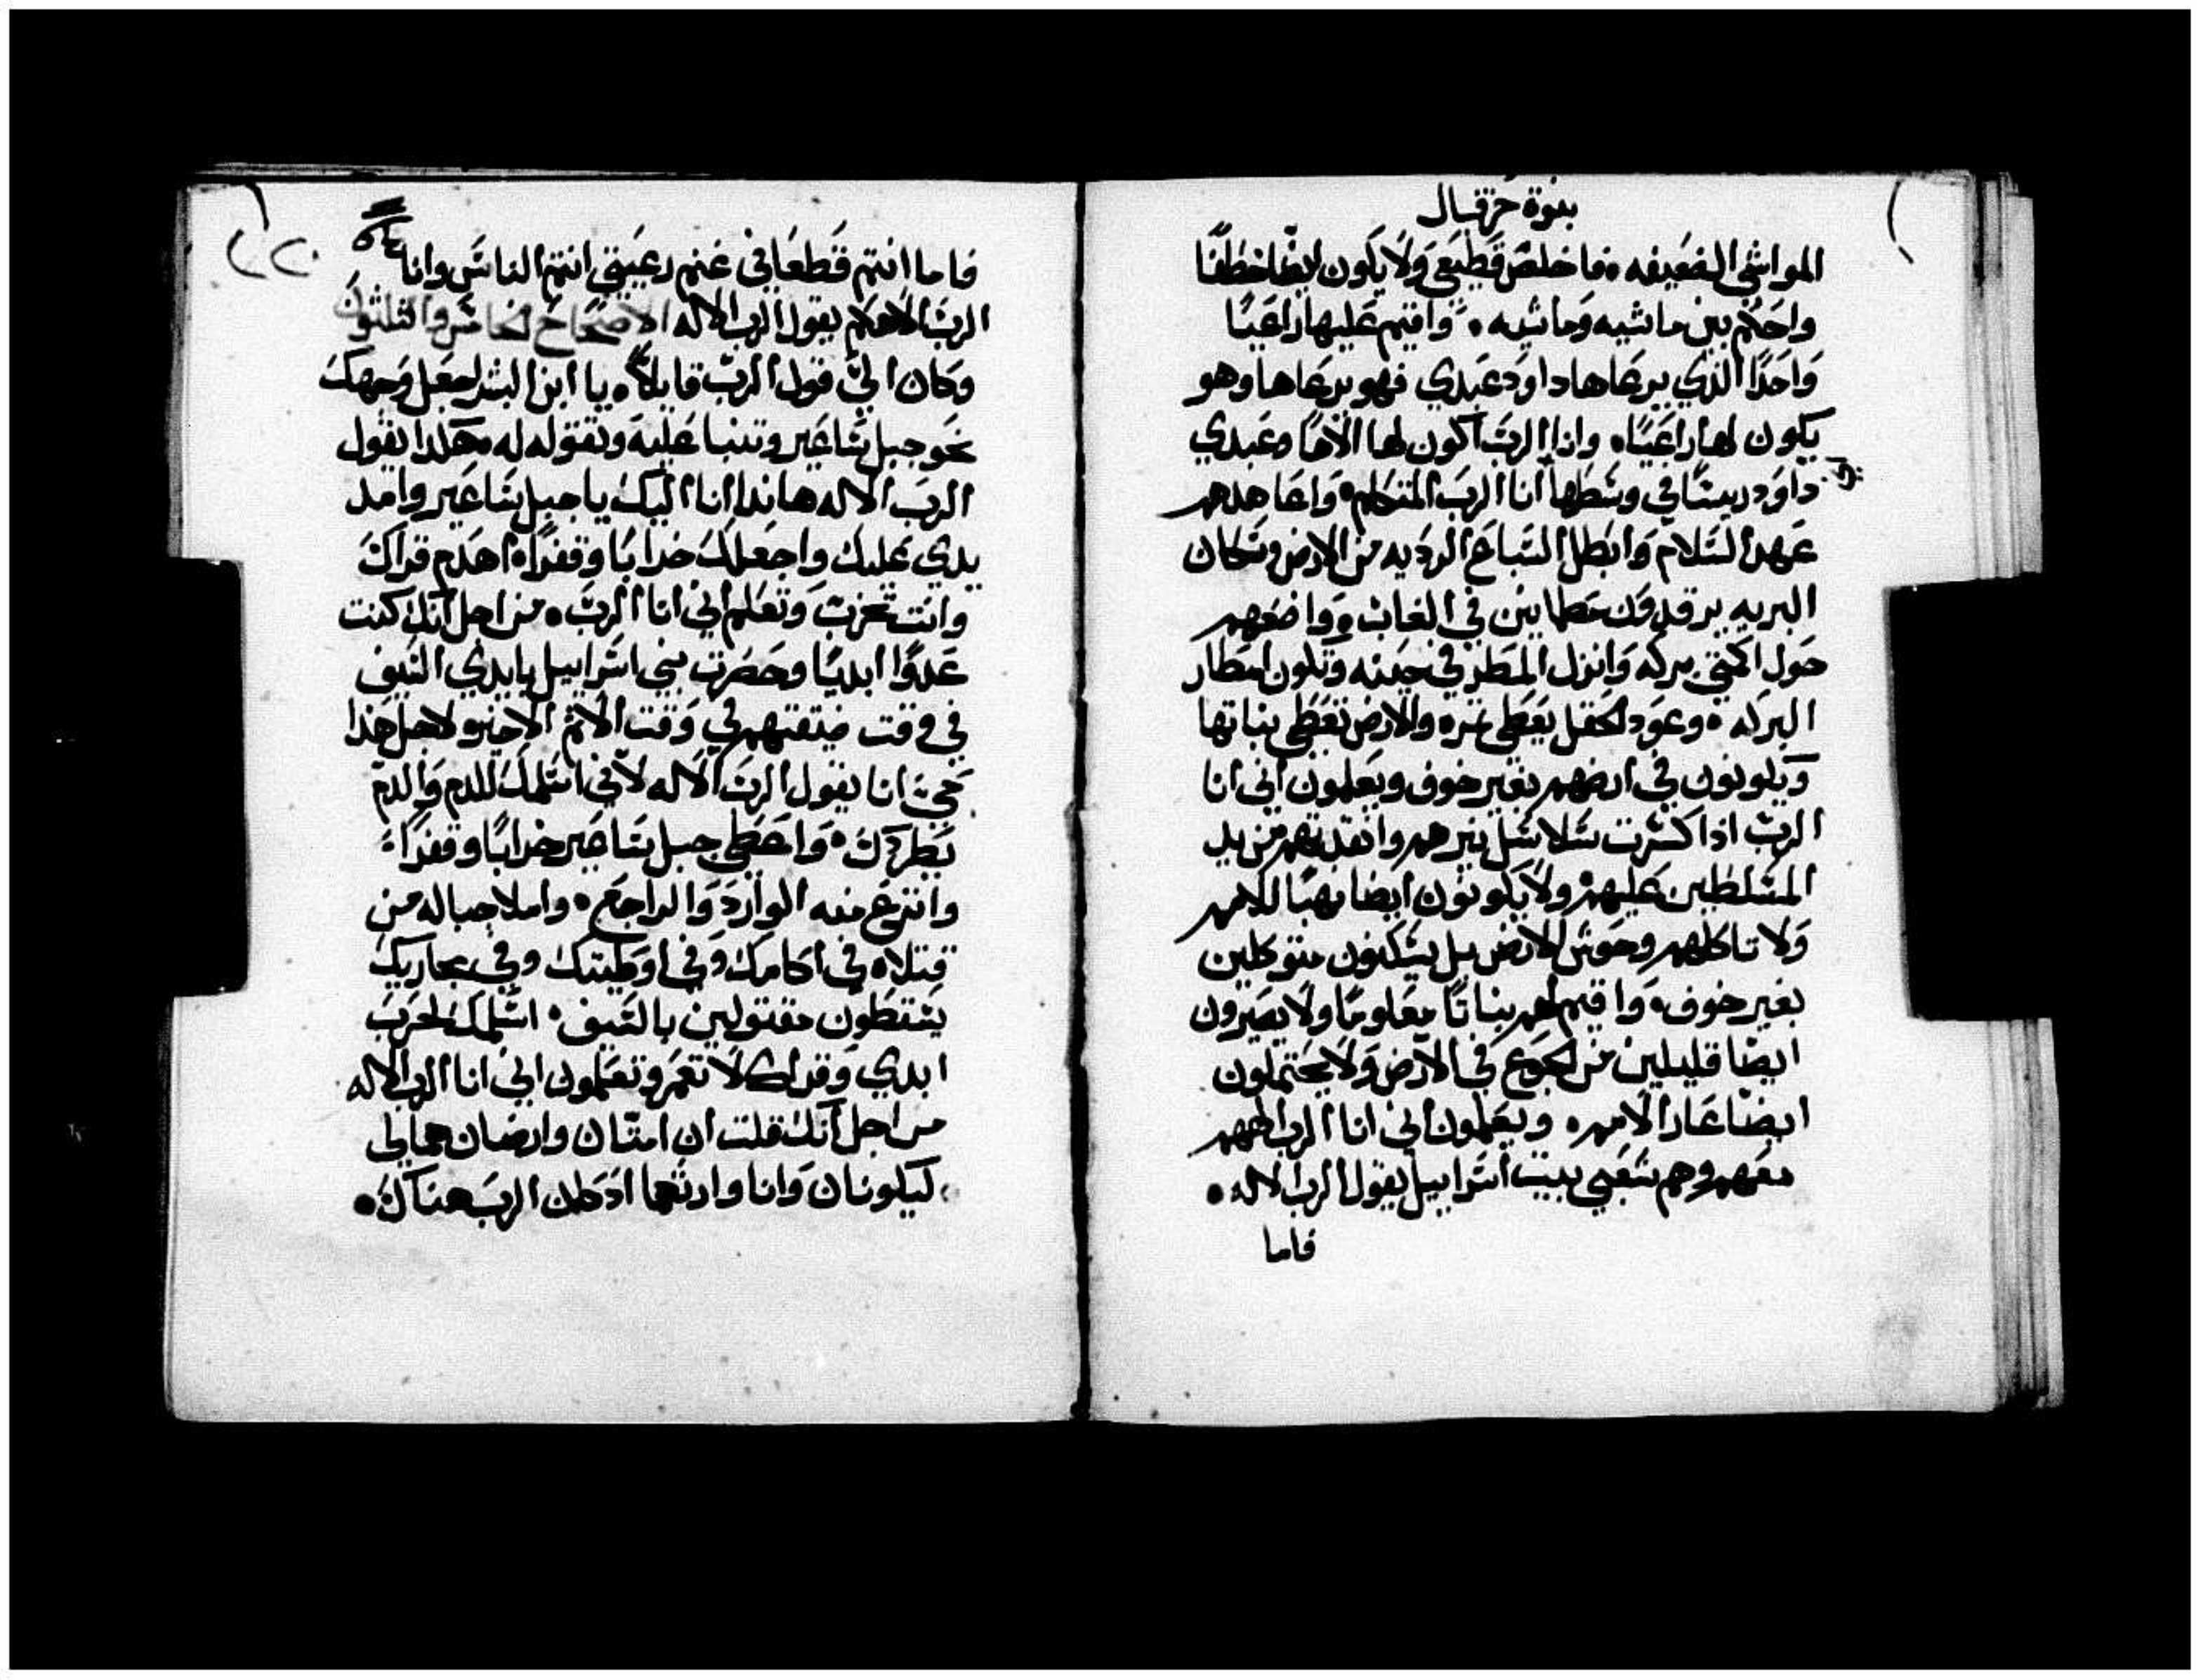 نبوة حزقيال
المواشي الضعيفه. فاخلص قطيعي ولا يكون ايضًا خطفًا
واحكم بين ماشيه وماشيه. واقيم عليها راعيًا
واحدًا الذي يرعاها داود عبدي فهو يرعاها وهو
يكون لها راعيًا. وانا الرب اكون لها الاهًا وعبدي
داود رييسًا في وسطها انا الرب المتكلم. واعاهدهم
عهد السلام وابطل السباع الرديه من الارض وسكان
البريه يرقدون مطماينين في الغاب. واضعهم
حول اكمتي بركه وانزل المطر في حينه وتكون امطار
البركه. وعود الحقل يعطي ثمره والارض تعطي نباتها
ويكونون في ارضهم بغير خوف ويعلمون اني انا
الرب اذا كسرت سلاسل نيرهم وانقدتهم من يد
المسلطين عليهم. ولا يكونون ايضا نهبًا للامم
ولا تاكلهم وحوش الارض بل يسكنون متوكلين
بغير خوف. واقيم لهم نباتًا معلومًا ولا يصيرون
ايضًا قليلين من الجوع في الارض ولا يحتملون
ايضًا عار الامم. ويعلمون اني انا الرب الههم
معهم وهم شعبي بيت اسراييل يقول الرب الاله.
فاما
فاما انتم قطعاني غنم رعيتي انتم الناس وانا
الرب الاهكم يقول الرب الاله الاصحاح الخامس والثلثون
وكان اليّ قول الرب قايلاً. يا ابن البشر اجعل وجهك
نحو جبل ساعير وتنبا عليه وتقوله له هكدا يقول
الرب الاله هاندا انا اليك يا جبل ساعير وامد
يدي عليك واجعلك خرابًا وقفرًا. اهدم قراك
وانت تخرب وتعلم اني انا الرب. من اجل انك كنت
عدوًا ابديًا وحصرت بني اسراييل بايدي السيف
في وقت ضيقتهم في وقت الاثم الاخير ولاجل هذا
حيّ انا يقول الرب الاله لاني اسلمك للدم والدم
يطردك. واعطي جبل ساعير خرابًا وقفرًا.
وانتزع منه الوارد والراجع. واملا جباله من
قتلاه في اكامك وفي اوطيتك وفي مجاريك
يسقطون مقتولين بالسيف. اسلمك لخرب
ابدي وقراك لا تعمر وتعلمون اني انا الرب الاله
من اجل انك قلت ان امتان وارضان هما لي
ليكونان وانا وارثهما اد كان الرب هناك.